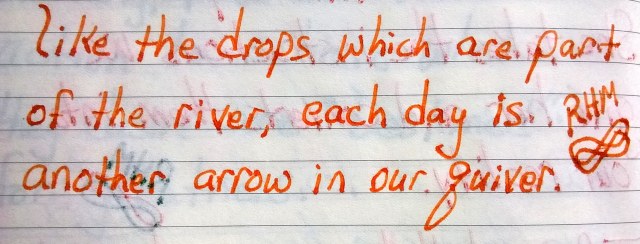 like the drops which are part
of the river, each day is
another arrow in our quiver.
RHM